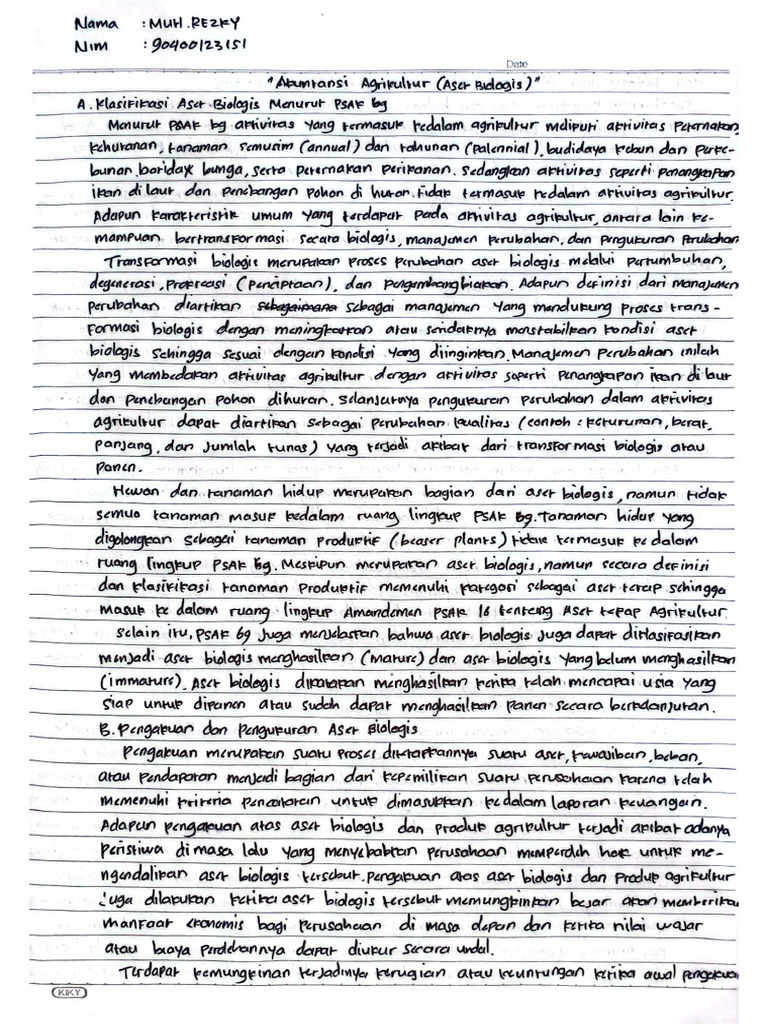 Nama : MUH. REZKY
Nim : 90400123151
Date
"Akuntansi Agrikultur (Aset Biologis)"
A. Klasifikasi Aset Biologis Menurut PSAK 69
Menurut PSAK 69 aktivitas yang termasuk kedalam agrikultur meliputi aktivitas peternakan,
kehutanan, tanaman semusim (annual) dan tahunan (palennial), budidaya kebun dan perke-
bunan, boriday bunga, serta peternakan perikanan. Sedangkan aktivitas seperti penangkapan
ikan di laut dan penebangan pohon di hutan tidak termasuk kedalam aktivitas agrikultur.
Adapun karakteristik umum yang terdapat pada aktivitas agrikultur, antara lain ke-
mampuan bertransformasi secara biologis, manajemen perubahan, dan pengukuran perubahan
Transformasi biologis merupakan proses perubahan aset biologis melalui pertumbuhan,
degenerasi, prokreasi (penciptaan), dan pengembangbiakan. Adapun definisi dari manajemen
perubahan diartikan sebagai manajemen yang mendukung proses trans-
formasi biologis dengan meningkatkan atau setidaknya menstabilkan kondisi aset
biologis sehingga sesuai dengan kondisi yang diinginkan. Manajemen perubahan inilah
yang membedakan aktivitas agrikultur dengan aktivitas seperti penangkapan ikan di laut
dan penebangan pohon dihutan. Selanjutnya pengukuran perubahan dalam aktivitas
agrikultur dapat diartikan sebagai perubahan kualitas (contoh : keturunan, berat,
panjang, dan jumlah tunas) yang terjadi akibat dari transformasi biologis atau
panen.
Hewan dan tanaman hidup merupakan bagian dari aset biologis, namun tidak
semua tanaman masuk kedalam ruang lingkup PSAK 69. Tanaman hidup yang
digolongkan sebagai tanaman produktif (beaser plants) tidak termasuk ke dalam
ruang lingkup PSAK 69. Meskipun merupakan aset biologis, namun secara definisi
dan klasifikasi tanaman produktif memenuhi kategori sebagai aset tetap sehingga
masuk ke dalam ruang lingkup Amandemen PSAK 16 tentang Aset Tetap Agrikultur.
Selain itu, PSAK 69 juga menjelaskan bahwa aset biologis juga dapat diklasifasikan
menjadi aset biologis menghasilkan (mature) dan aset biologis yang belum menghasilkan
(immature). Aset biologis dikatakan menghasilkan ketika telah mencapai usia yang
siap untuk dipanen atau sudah dapat menghasilkan panen secara berkelanjutan.
B. Pengakuan dan pengukuran Aset Biologis
Pengakuan merupakan suatu proses ditetapkannya suatu aset, kewajiban, beban,
atau pendapatan menjadi bagian dari kepemilikan suatu perusahaan karena telah
memenuhi kriteria pencatatan untuk dimasukkan kedalam laporan keuangan.
Adapun pengakuan atas aset biologis dan produk agrikultur terjadi akibat adanya
peristiwa di masa lalu yang menyebabkan perusahaan memperoleh hak untuk me-
ngendalikan aset biologis tersebut. pengakuan atas aset biologis dan produk agrikultur
juga dilakukan ketika aset biologis tersebut memungkinkan besar akan memberikan
manfaat ekonomis bagi perusahaan di masa depan dan ketika nilai wajar
atau biaya perolehannya dapat diukur secara
Terdapat kemungkinan terjadinya kerugian atau keuntungan ketika awal pengakuan
KIKY